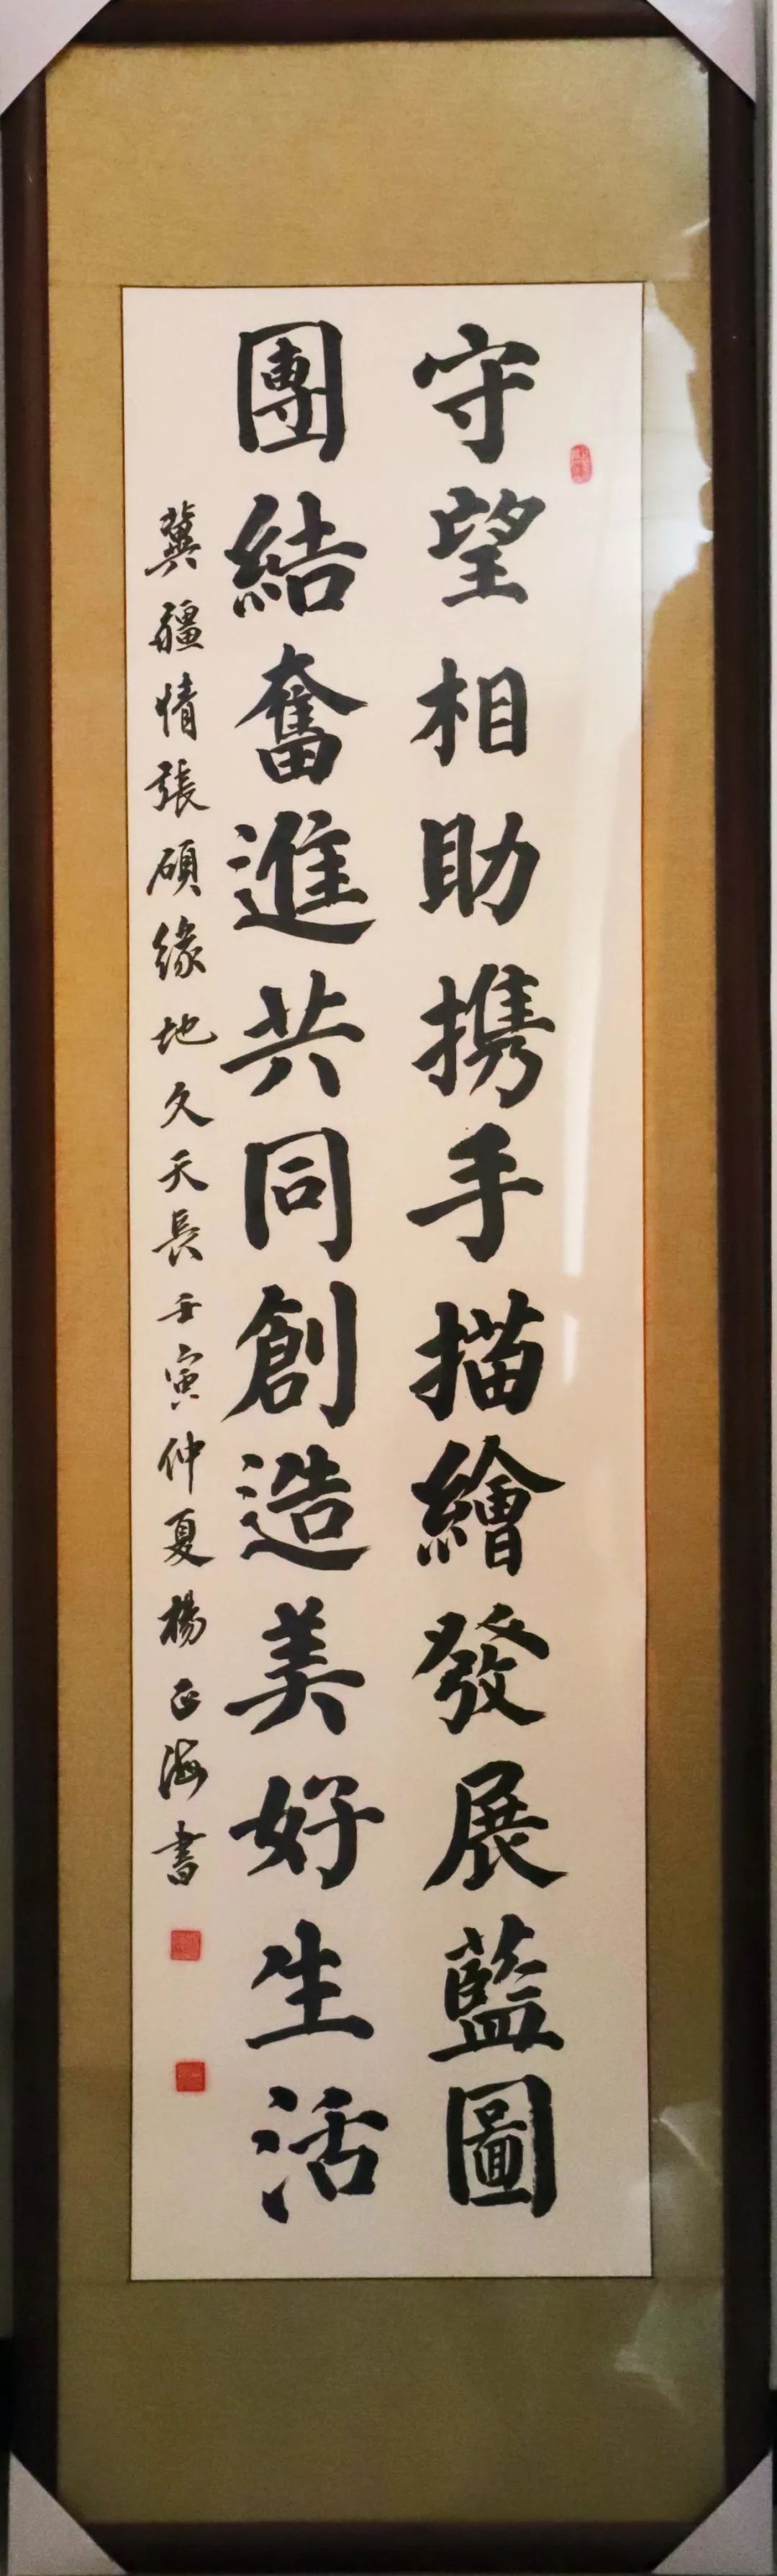 守望相助携手描繪發展藍圖
團結奮進共同創造美好生活
冀疆情張碩緣地久天長壬寅仲夏楊正海書